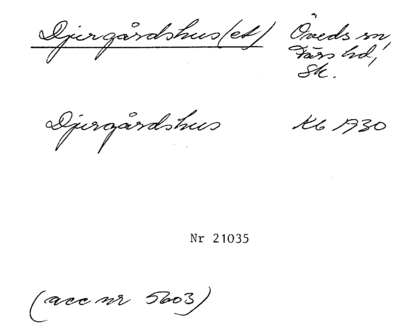 Djurgårdshus(et) Öveds sn,
Färs hd,
Sk.
Djurgårdshus KG 1930
Nr 21035
(acc nr 5603)